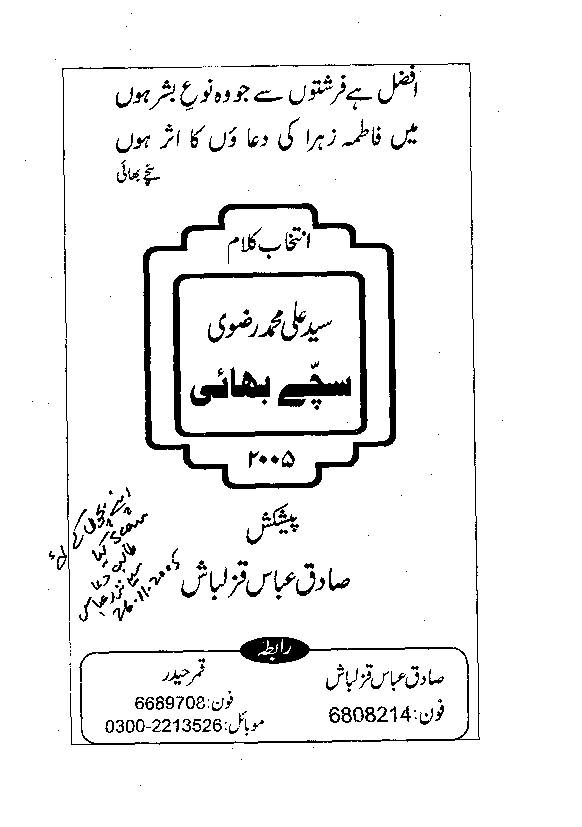 افضل ہے فرشتوں سے جو وہ نوعِ بشر ہوں
میں فاطمہ زہرا کی دعاؤں کا اثر ہوں
سچے بھائی
انتخاب کلام
سید علی محمد رضوی
سچّے بھائی
۲۰۰۵
پیشکش
صادق عباس قزلباش
اپنے بچوں کے لئے
Scan کیا
طالب دعا
سید نذر عباس
26.11.2005
رابطہ
صادق عباس قزلباش
فون: 6808214
قمر حیدر
فون: 6689708
موبائل: 0300-2213526